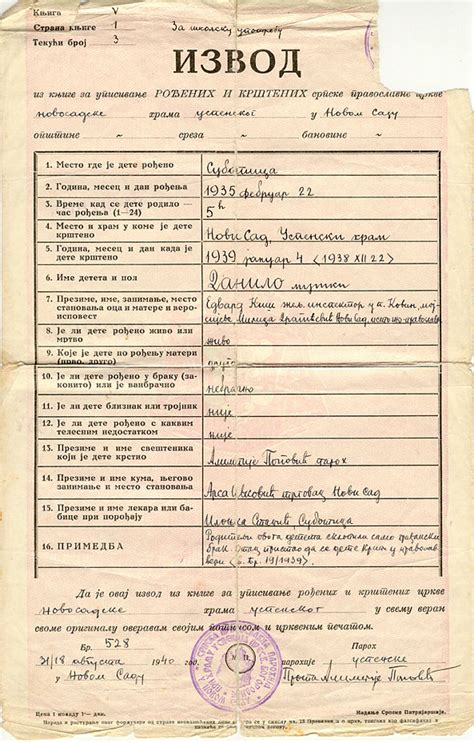 Књига V
Страна књиге 1 За школску употребу
Текући број 3
ИЗВОД
из књиге за уписивање РОЂЕНИХ И КРШТЕНИХ српске православне цркве
новосадске храма успенског у Новом Саду
општине „ среза „ бановине „
1. Место где је дете рођено Суботица
2. Година, месец и дан рођења 1935 фебруар 22
3. Време кад се дете родило — час рођења (1—24) 5h
4. Место и храм у коме је дете крштено Нови Сад, Успенски храм
5. Година, месец и дан када је дете крштено 1939 јануар 4 (1938 XII 22)
6. Име детета и пол Данило мушки
7. Презиме, име, занимање, место становања оца и матере и вероисповест Едвард Киш жељ. инспектор у п. Ковин, мојсијеве Милица Драгићевић Нови Сад, источно-православна
8. Је ли дете рођено живо или мртво живо
9. Које је дете по рођењу матери (прво, друго) друго
10. Је ли дете рођено у браку (законито) или је ванбрачно небрачно
11. Је ли дете близнак или тројник није
12. Је ли дете рођено с каквим телесним недостатком није
13. Презиме и име свештеника који је дете крстио Алимпије Поповић парох
14. Презиме и име кума, његово занимање и место становања Арса трговац Нови Сад
15. Презиме и име лекара или бабице при порођају Суботица
16. ПРИМЕДБА Родитељи овога детета склопили само грађански
брак. Отац пристао да се дете крсти у православној
вери (Бр. 19/1939.)
Да је овај извод из књиге за уписивање рођених и крштених цркве
новосадске храма успенског у свему веран
своме оригиналу оверавам својим потписом и црквеним печатом.
Бр. 528 Парох
31/18 августа 1940 год. парохије успенске
у Новом Саду Прота Алимпије Поповић
Цена 1 изводу 1— дин. Издање Српске Патријаршије.